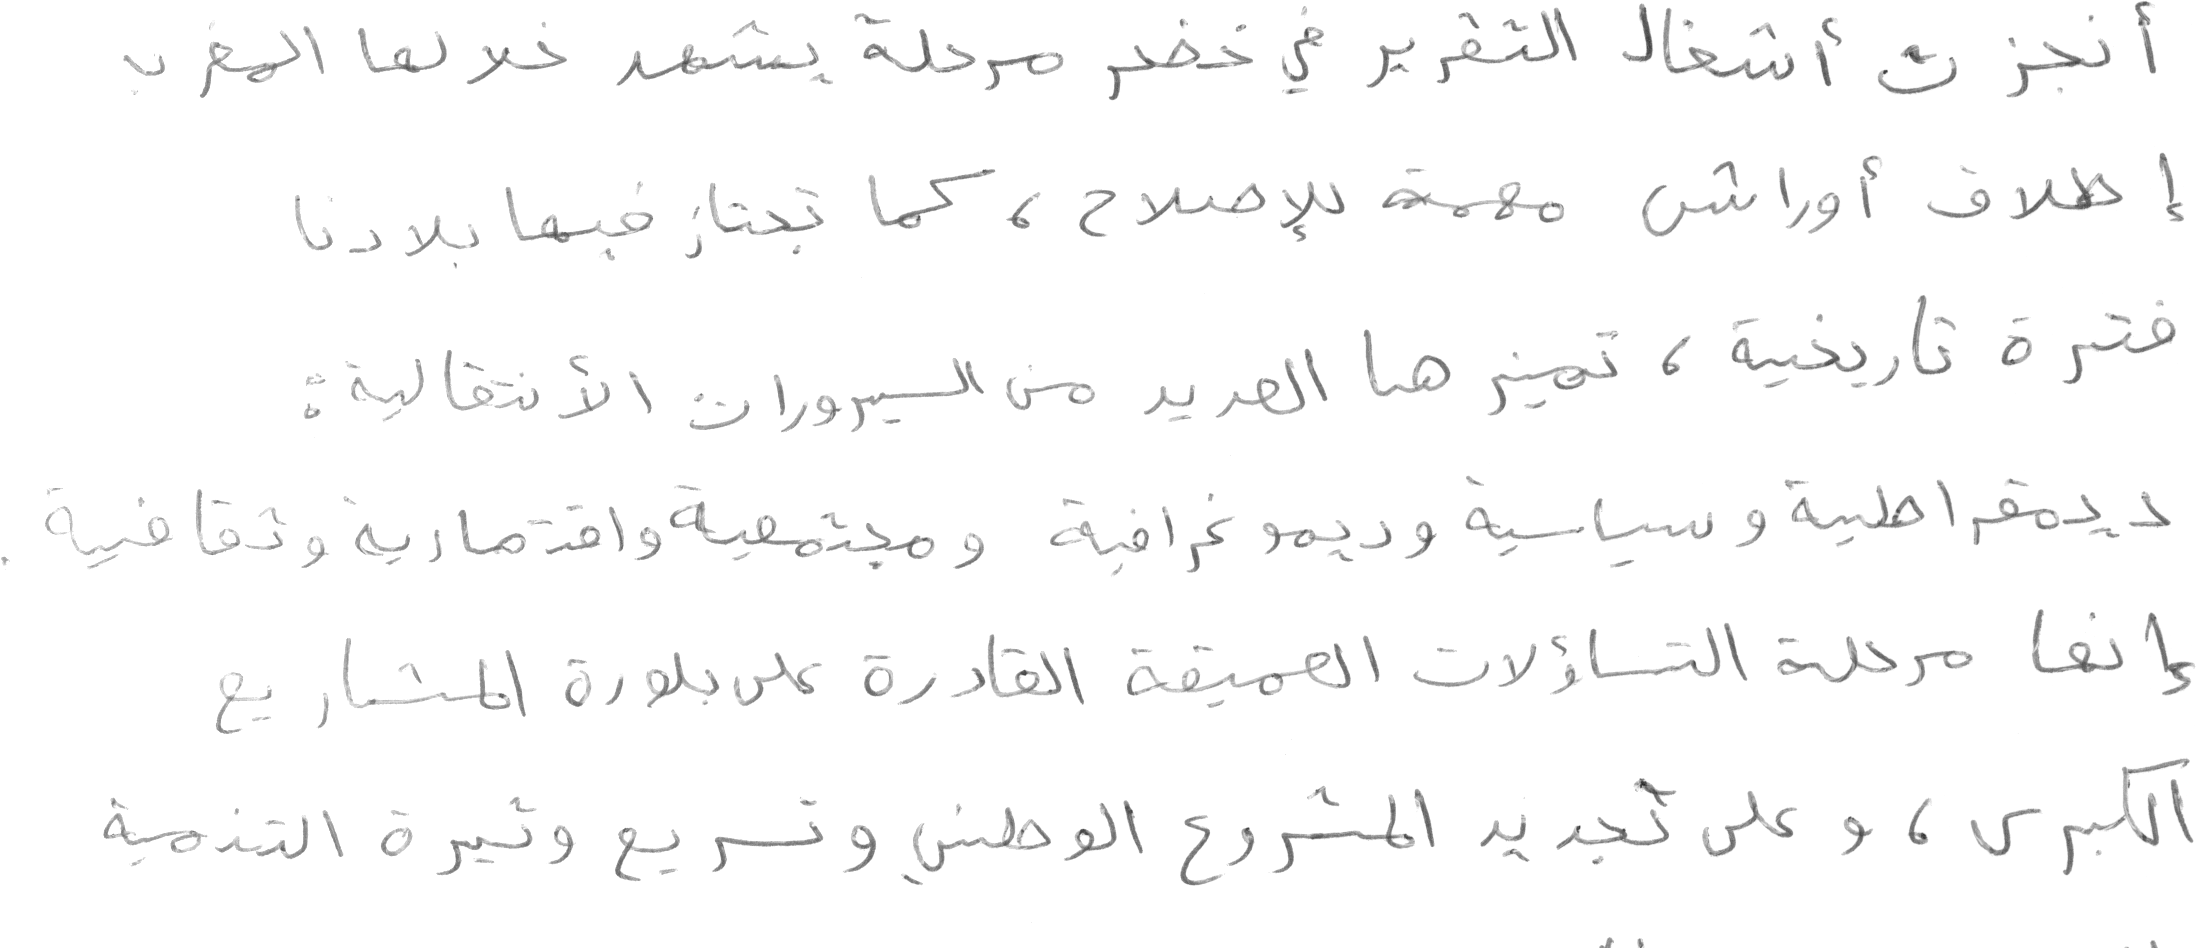 أنجزت أشغال التقرير في خضم مرحلة يشهد خلالها المغرب
إطلاق أوراش مهمة للإصلاح، كما تجتاز فيها بلادنا
فترة تاريخية، تميزها العديد من السيرورات الأنتقالية:
ديمقراطية وسياسية وديموغرافية ومجتمعية واقتصادية وثقافية.
إنها مرحلة التساؤلات العميقة القادرة على بلورة المشاريع
الكبرى، وعلى تجديد المشروع الوطني وتسريع وثيرة التنمية